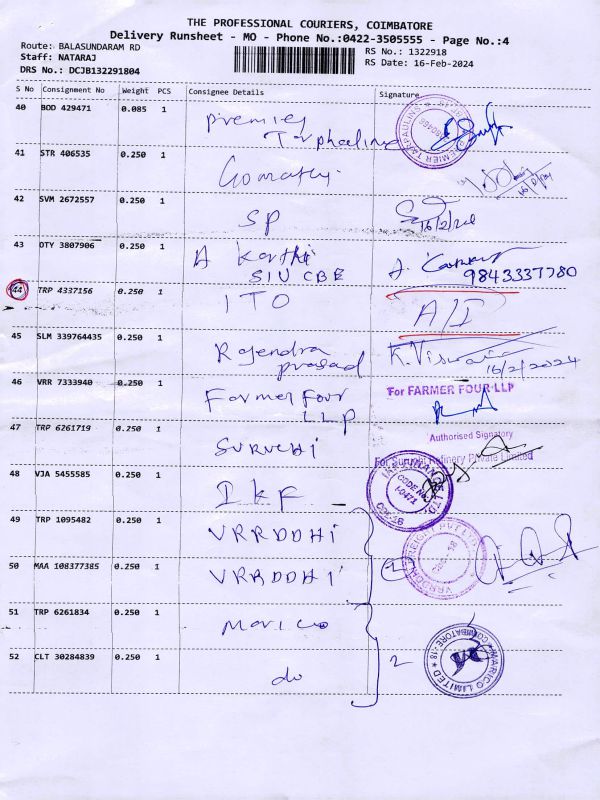 THE PROFESSIONAL COURIERS, COIMBATORE
Delivery Runsheet - MO - Phone No.:0422-3505555 - Page No.:4
Route: BALASUNDARAM RD
Staff: NATARAJ
DRS No.: DCJB132291804
RS No.: 1322918
RS Date: 16-Feb-2024
S No Consignment No Weight PCS Consignee Details Signature
40 BOD 429471 0.085 1 Premier
Tarphaulins
41 STR 406535 0.250 1 Gomathi
16/2/24
42 SVM 2672557 0.250 1 SP 16/2/24
43 OTY 3807906 0.250 1 A Karthi
SIV CBE 9843337780
44 TRP 4337156 0.250 1 ITO A/I
45 SLM 339764435 0.250 1 Rajendra
prasad 16/2/2024
46 VRR 7333940 0.250 1 Farmer Four
LLP For FARMER FOUR LLP
Authorised Signatory
47 TRP 6261719 0.250 1 Suruchi
For Suruchi Refinery Private Limited
48 VJA 5455585 1 IKF
49 TRP 1095482 0.250 1 VRRDDHI
50 MAA 108377385 0.250 1 VRRDDHI 2
51 TRP 6261834 0.250 1 Marico
52 CLT 30284839 0.250 1 do 2
MARICO LIMITED
COIMBATORE-18